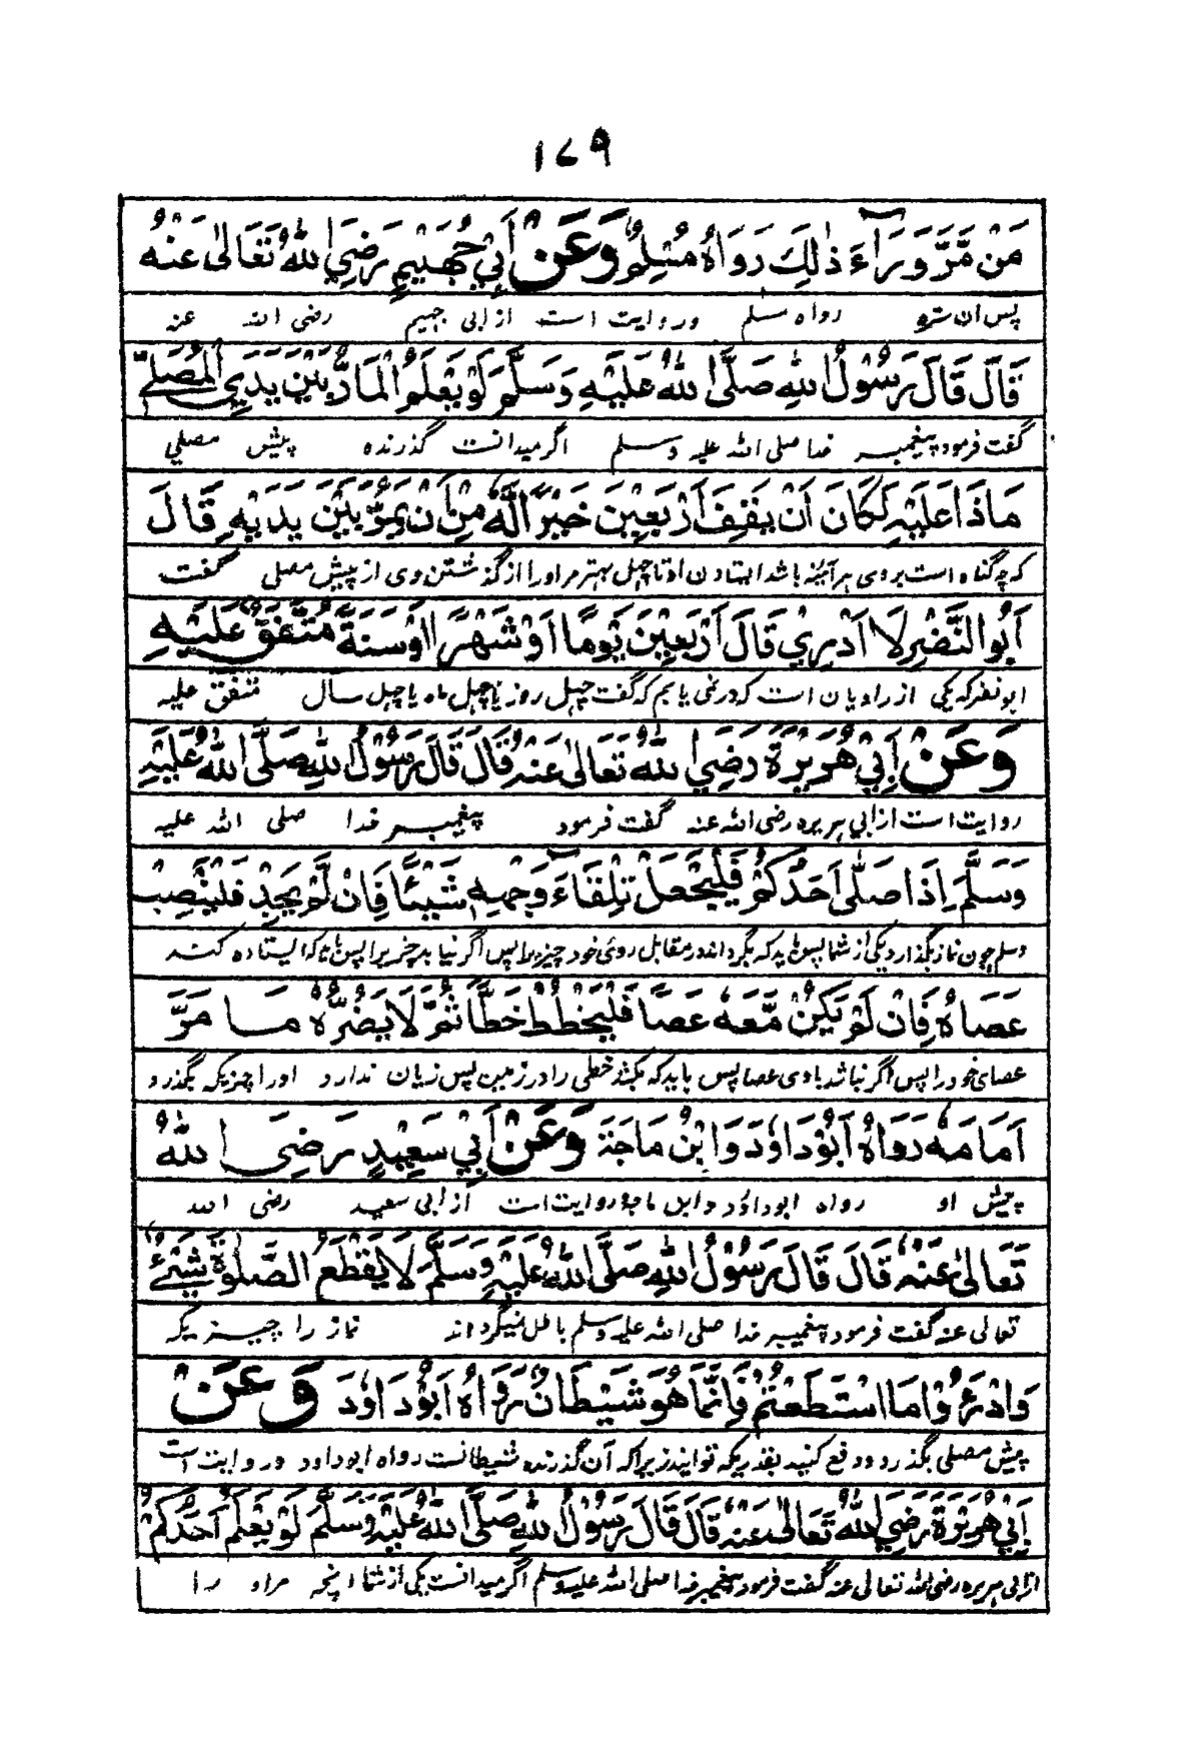 ۱۷۹
مَنْ مَّرَّ وَرَآءَ ذٰلِكَ رَوَاهُ مُسْلِمٌ وَعَنْ اَبِيْ جُهَيْمٍ رَضِيَ اللهُ تَعَالٰى عَنْهُ
پس ان ستره رواه مسلم و روایت است از ابی جهیم رضی الله عنه
قَالَ قَالَ رَسُوْلُ اللهِ صَلَّى اللهُ عَلَيْهِ وَسَلَّمَ لَوْ يَعْلَمُ الْمَارُّ بَيْنَ يَدَيِ الْمُصَلِّيْ
گفت فرمود پیغمبر خدا صلی الله علیه وسلم اگر میدانست گذرنده پیش مصلي
مَاذَا عَلَيْهِ لَكَانَ اَنْ يَقِفَ اَرْبَعِيْنَ خَيْرًا لَّهٗ مِنْ اَنْ يَمُرَّ بَيْنَ يَدَيْهِ قَالَ
که چه گناه است بر وی هر آئینه باشد ایستادن او تا چهل بهتر مر او را از گذشتن وی از پیش مصلی گفت
اَبُو النَّضْرِ لَا اَدْرِيْ قَالَ اَرْبَعِيْنَ يَوْمًا اَوْ شَهْرًا اَوْ سَنَةً مُتَّفَقٌ عَلَيْهِ
ابو نضر که یکی از راویان است که در نمی یابم که گفت چهل روز یا چهل ماه یا چهل سال متفق علیه
وَعَنْ اَبِيْ هُرَيْرَةَ رَضِيَ اللهُ تَعَالٰى عَنْهُ قَالَ قَالَ رَسُوْلُ اللهِ صَلَّى اللهُ عَلَيْهِ
روایت است از ابي هریره رضی الله عنه گفت فرمود پیغمبر خدا صلی الله علیه
وَسَلَّمَ اِذَا صَلّٰى اَحَدُكُمْ فَلْيَجْعَلْ تِلْقَآءَ وَجْهِهٖ شَيْئًا فَاِنْ لَّمْ يَجِدْ فَلْيَنْصِبْ
وسلم چون نماز بگذارد یکی از شما پس باید که بگرداند در مقابل روئی خود چیزیرا پس اگر نیابد چیزیرا پس باید که ایستاده کند
عَصَاهُ فَاِنْ لَّمْ يَكُنْ مَّعَهٗ عَصًا فَلْيَخْطُطْ خَطًّا ثُمَّ لَا يَضُرُّهٗ مَا مَرَّ
عصای خود را پس اگر نباشد با وی عصا پس باید که بکشد خطی را در زمین پس زیان ندارد او را چیزیکه بگذرد
اَمَامَهٗ رَوَاهُ اَبُوْدَاوٗدَ وَابْنُ مَاجَةَ وَعَنْ اَبِيْ سَعِيْدٍ رَضِيَ اللهُ
پیش او رواه ابوداؤد وابن ماجة و روایت است از ابی سعید رضی الله
تَعَالٰى عَنْهُ قَالَ قَالَ رَسُوْلُ اللهِ صَلَّى اللهُ عَلَيْهِ وَسَلَّمَ لَا يَقْطَعُ الصَّلٰوةَ شَيْئٌ
تعالی عنه گفت فرمود پیغمبر خدا صلی الله علیه وسلم باطل نمیگرداند نماز را چیزیکه
وَادْرَءُوْا مَا اسْتَطَعْتُمْ فَاِنَّمَا هُوَ شَيْطَانٌ رَوَاهُ اَبُوْدَاوٗدَ وَعَنْ
پیش مصلی بگذرد و دفع کنید بقدریکه توانید زیراکه آن گذرنده شیطانست رواه ابوداود و روایت است
اَبِيْ هُرَيْرَةَ رَضِيَ اللهُ تَعَالٰى عَنْهُ قَالَ قَالَ رَسُوْلُ اللهِ صَلَّى اللهُ عَلَيْهِ وَسَلَّمَ لَوْ يَعْلَمُ اَحَدُكُمْ
از ابی هریره رضی الله تعالی عنه گفت فرمود پیغمبر خدا صلی الله علیه وسلم اگر میدانست یکی از شما آنچه مر او را